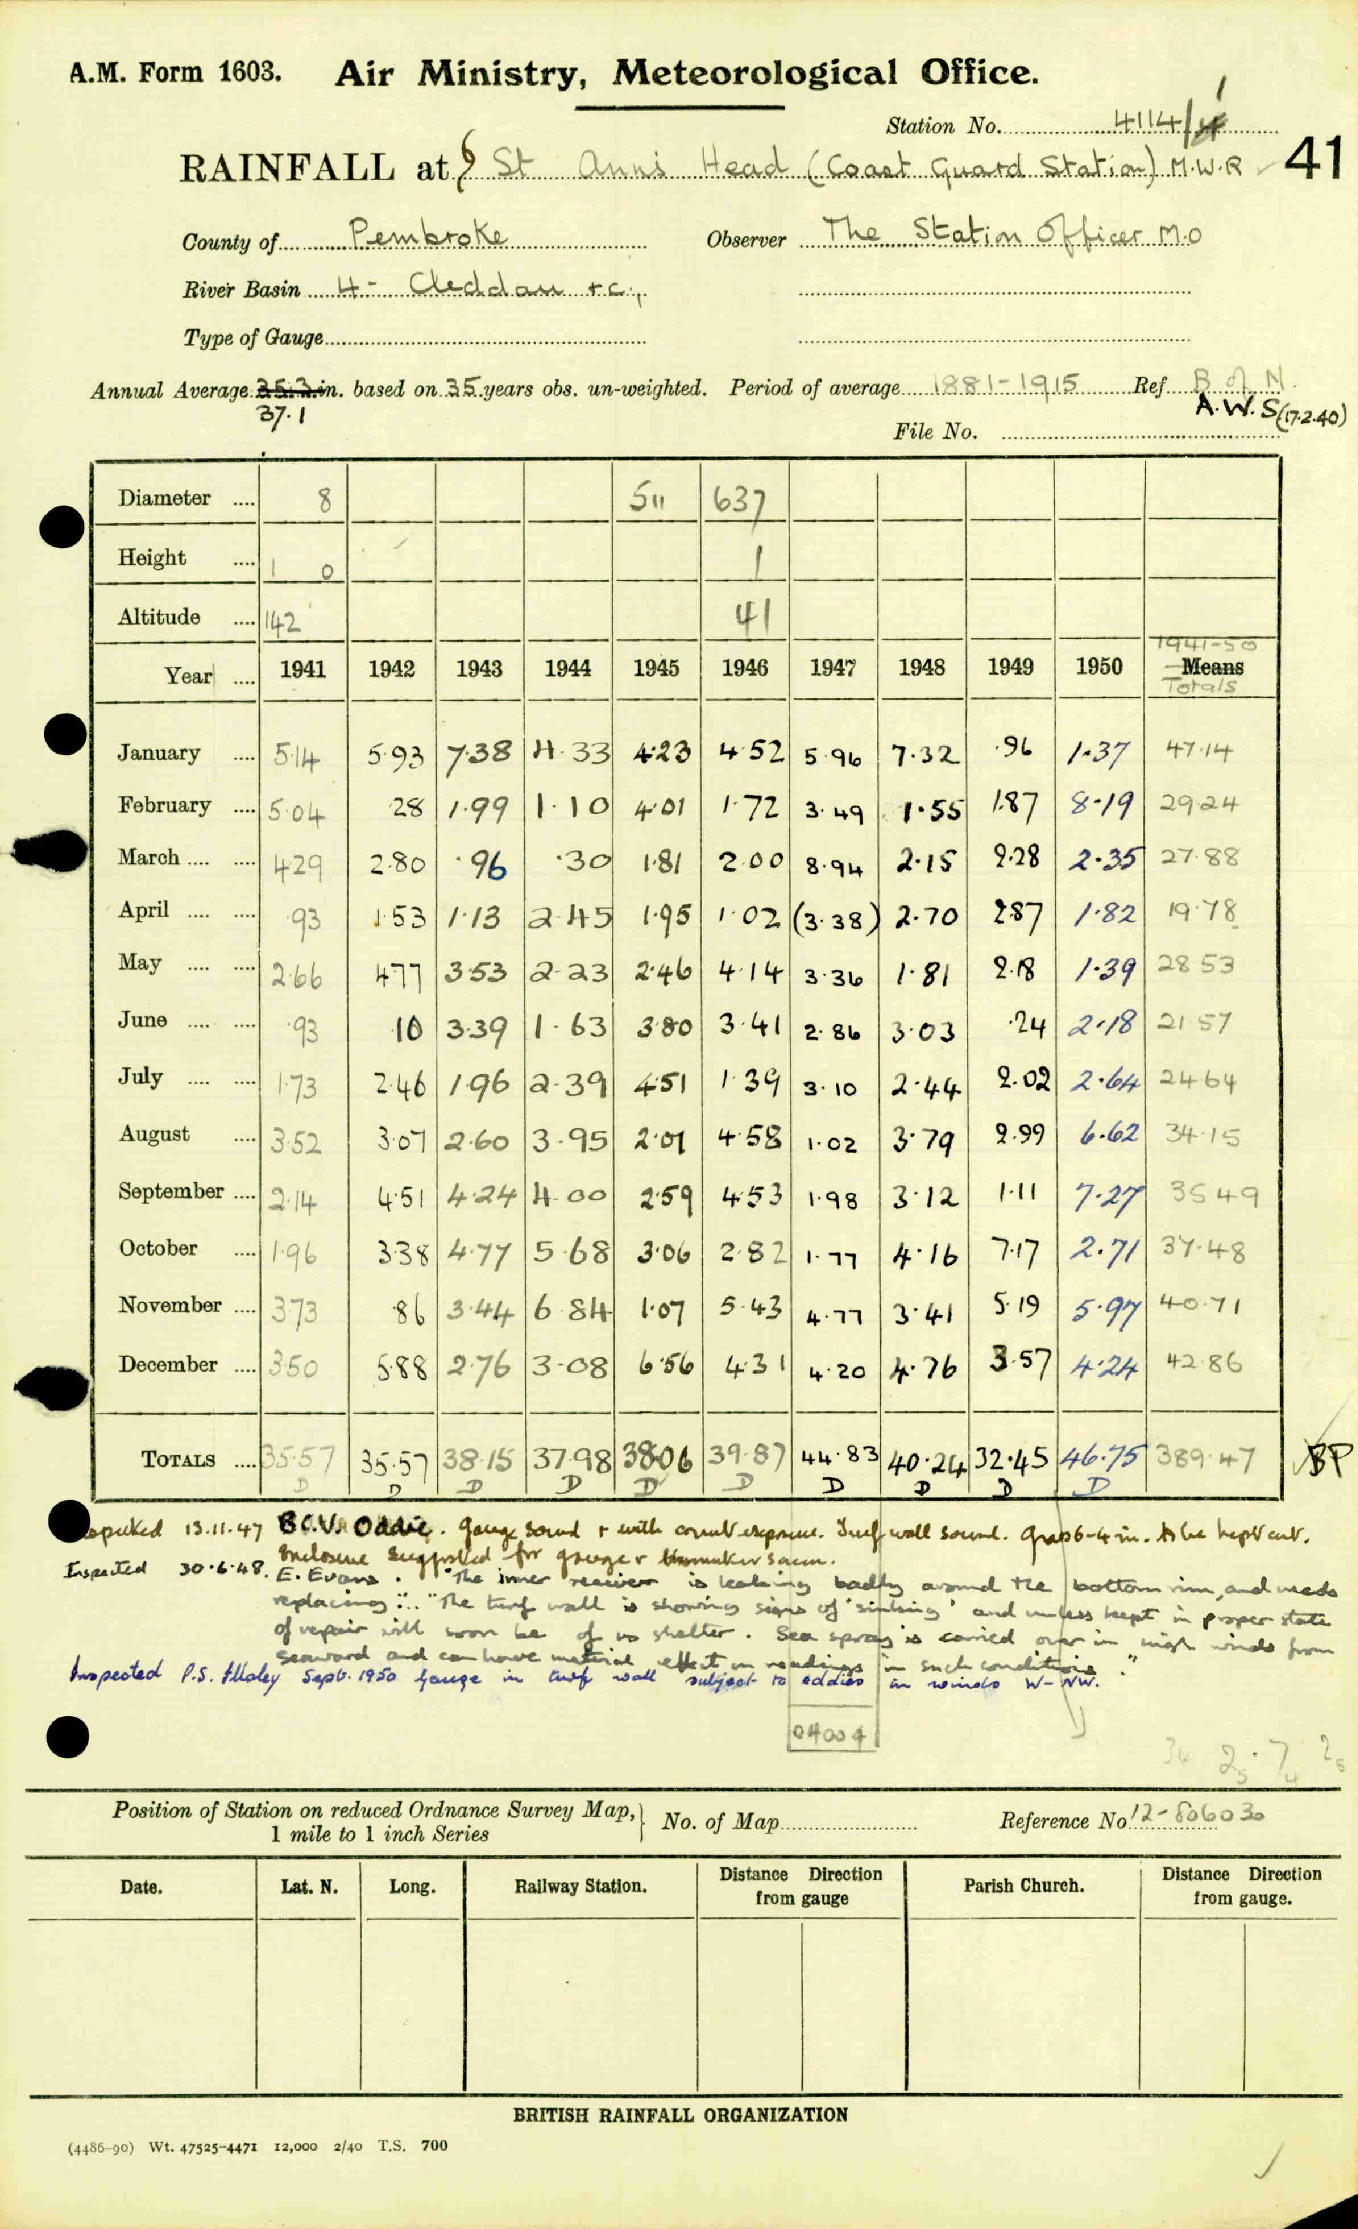 A.M. Form 1603. Air Ministry, Meteorological Office.
Station No. 4114/1
RAINFALL at St Ann's Head (Coast Guard Station) M.W.R 41
County of Pembroke Observer The Station Officer M.O
River Basin 4- Cleddau &c.,
Type of Gauge
Annual Average 35.3 in. based on 35 years obs. un-weighted. Period of average 1881-1915 Ref B of N.
37.1 A.W.S (17.2.40)
File No.
Diameter .... 8 5" 637
Height .... 1 0 1
Altitude .... 142 41
1941-50
Year .... 1941 1942 1943 1944 1945 1946 1947 1948 1949 1950 Means
Totals
January .... 5.14 5.93 7.38 4.33 4.23 4.52 5.96 7.32 .96 1.37 47.14
February .... 5.04 .28 1.99 1.10 4.01 1.72 3.49 1.55 1.87 8.19 29.24
March .... .... 4.29 2.80 .96 .30 1.81 2.00 8.94 2.15 2.28 2.35 27.88
April .... .... .93 1.53 1.13 2.45 1.95 1.02 (3.38) 2.70 2.87 1.82 19.78
May .... .... 2.66 4.77 3.53 2.23 2.46 4.14 3.36 1.81 2.18 1.39 28.53
June .... .... .93 .10 3.39 1.63 3.80 3.41 2.86 3.03 .24 2.18 21.57
July .... .... 1.73 2.46 1.96 2.39 4.51 1.39 3.10 2.44 2.02 2.64 24.64
August .... 3.52 3.07 2.60 3.95 2.01 4.58 1.02 3.79 2.99 6.62 34.15
September .... 2.14 4.51 4.24 4.00 2.59 4.53 1.98 3.12 1.11 7.27 35.49
October .... 1.96 3.38 4.77 5.68 3.06 2.82 1.77 4.16 7.17 2.71 37.48
November .... 3.73 .86 3.44 6.84 1.07 5.43 4.77 3.41 5.19 5.97 40.71
December .... 3.50 5.88 2.76 3.08 6.56 4.31 4.20 4.76 3.57 4.24 42.86
TOTALS .... 35.57 35.57 38.15 37.98 38.06 39.87 44.83 40.24 32.45 46.75 389.47 BP
D D D D D D D D D D
Inspected 13.11.47 B.C.V. Oddie. Gauge sound & with exposure. Turf wall sound. Grass 6-4 in. to be kept cut.
Enclosure suggested for gauge &
Inspected 30.6.48. E. Evans. "The inner receiver is leaking badly around the bottom rim, and needs
replacing"... "The turf wall is showing signs of 'sinking' and unless kept in proper state
of repair will soon be of no shelter. Sea spray is carried over in high winds from
seaward and can have material effect on readings in such conditions."
Inspected P.S. Sept. 1950 Gauge in turf wall subject to eddies in winds W-NW.
04004
34
Position of Station on reduced Ordnance Survey Map, No. of Map Reference No 12-806030
1 mile to 1 inch Series
Date. Lat. N. Long. Railway Station. Distance from gauge Direction Parish Church. Distance Direction from gauge.
BRITISH RAINFALL ORGANIZATION
(4486-90) Wt. 47525-4471 12,000 2/40 T.S. 700